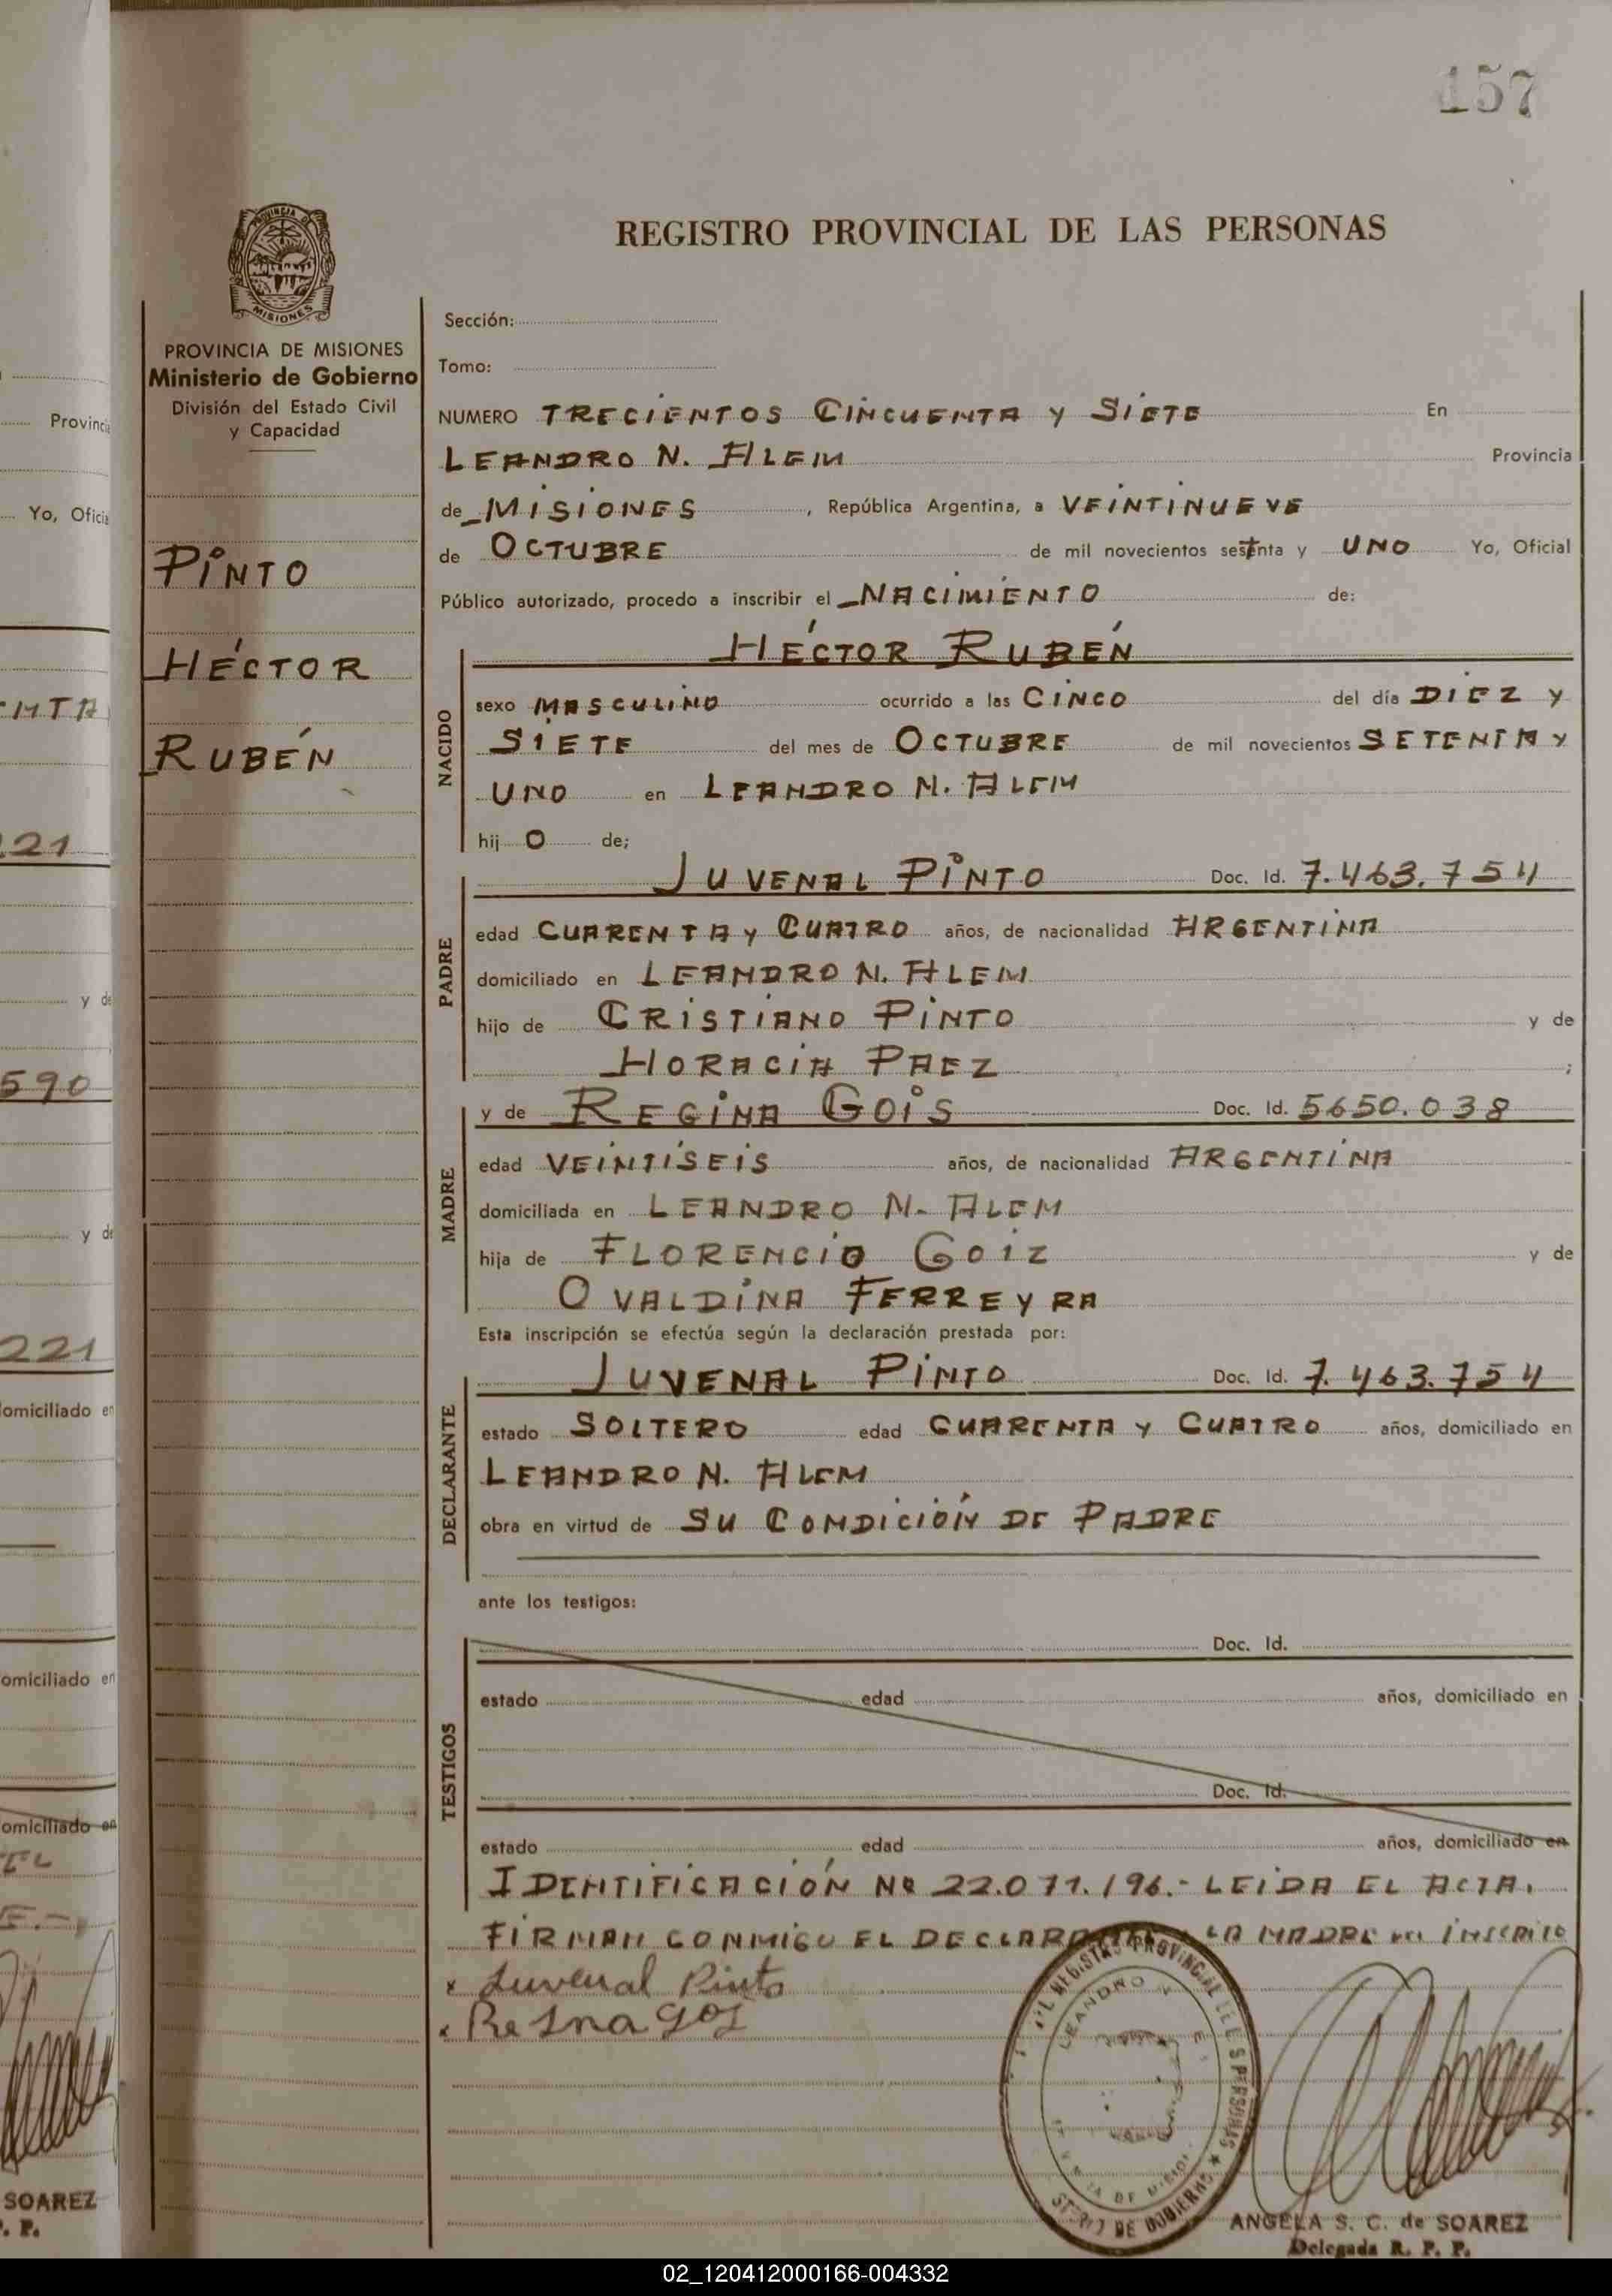 157
REGISTRO PROVINCIAL DE LAS PERSONAS
PROVINCIA DE MISIONES
Ministerio de Gobierno
División del Estado Civil
y Capacidad
PINTO
HÉCTOR
RUBÉN
Sección:
Tomo:
NUMERO TRECIENTOS CINCUENTA Y SIETE En
LEANDRO N. ALEM Provincia
de MISIONES, República Argentina, a VEINTINUEVE
de OCTUBRE de mil novecientos setenta y UNO Yo, Oficial
Público autorizado, procedo a inscribir el NACIMIENTO de:
HÉCTOR RUBÉN
NACIDO
sexo MASCULINO ocurrido a las CINCO del día DIEZ Y
SIETE del mes de OCTUBRE de mil novecientos SETENTA Y
UNO en LEANDRO N. ALEM
hij O de;
JUVENAL PINTO Doc. Id. 7.463.754
PADRE
edad CUARENTA Y CUATRO años, de nacionalidad ARGENTINA
domiciliado en LEANDRO N. ALEM
hijo de CRISTIANO PINTO y de
HORACIA PAEZ ;
y de REGINA GOIS Doc. Id. 5650.038
MADRE
edad VEINTISEIS años, de nacionalidad ARGENTINA
domiciliada en LEANDRO N. ALEM
hija de FLORENCIO GOIZ y de
OVALDINA FERREYRA
Esta inscripción se efectúa según la declaración prestada por:
JUVENAL PINTO Doc. Id. 7.463.754
DECLARANTE
estado SOLTERO edad CUARENTA Y CUATRO años, domiciliado en
LEANDRO N. ALEM
obra en virtud de SU CONDICIÓN DE PADRE
ante los testigos:
Doc. Id.
TESTIGOS
estado edad años, domiciliado en
Doc. Id.
estado edad años, domiciliado en
IDENTIFICACIÓN Nº 22.071.196.- LEIDA EL ACTA,
FIRMAN CONMIGO EL DECLARANTE LA MADRE del INSCRITO
x Juvenal Pinto
x Regina goj
ANGELA S. C. de SOAREZ
Delegada R. P. P.
02_120412000166-004332